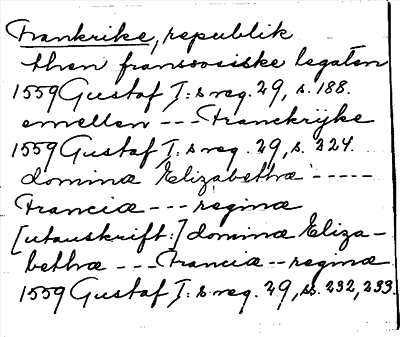 Frankrike, republik
then fransosiske legaten
1559 Gustaf I:s reg. 29, s. 188.
emellen --- Franckrijke
1559 Gustaf I:s reg. 29, s. 224.
dominæ Elizabethæ -----
Franciæ --- reginæ
[utanskrift:] dominæ Eliza-
bethæ --- Franciæ -- reginæ
1559 Gustaf I:s reg. 29, ss. 232, 233.